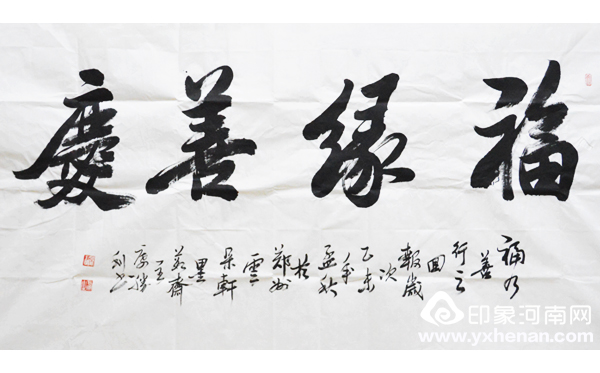 福緣善慶
福乃
善
行之
回
報歲
次
乙未
年
孟秋
於
鄭州
雲
朵軒
墨
齋
王
印象河南网
www.yxhenan.com